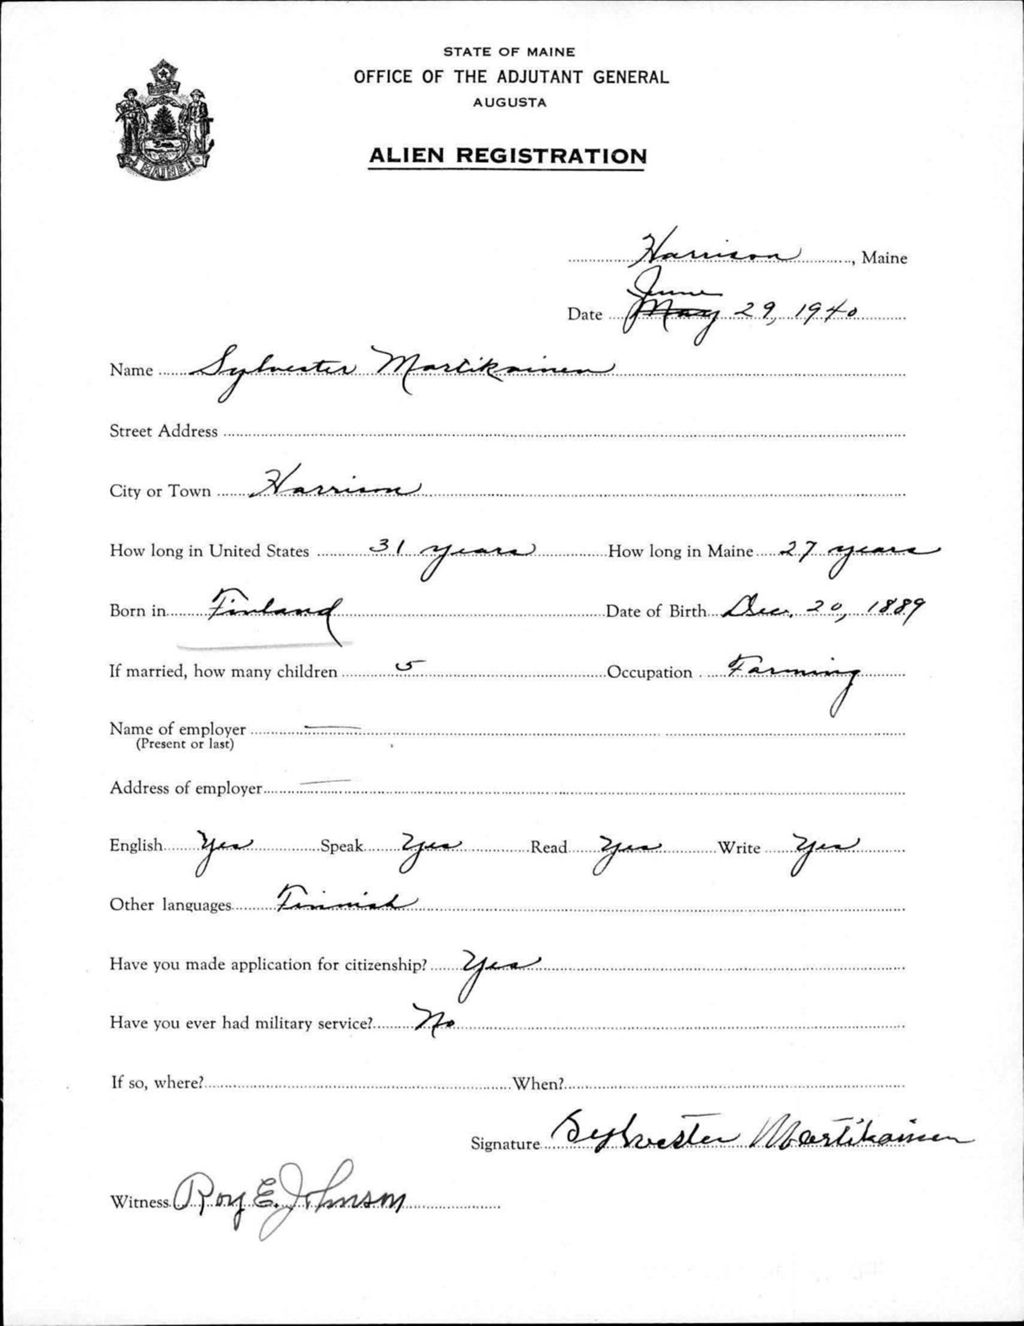 STATE OF MAINE
OFFICE OF THE ADJUTANT GENERAL
AUGUSTA
MAINE
ALIEN REGISTRATION
Harrison, Maine
June
Date May 29, 1940
Name Sylvester Martikainen
Street Address
City or Town Harrison
How long in United States 31 years How long in Maine 27 years
Born in Finland Date of Birth Dec. 20, 1889
If married, how many children 5 Occupation Farming
Name of employer —
(Present or last)
Address of employer —
English Yes Speak Yes Read Yes Write Yes
Other languages Finnish
Have you made application for citizenship? Yes
Have you ever had military service? No
If so, where? When?
Signature Sylvester Martikainen
Witness Roy E. Johnson